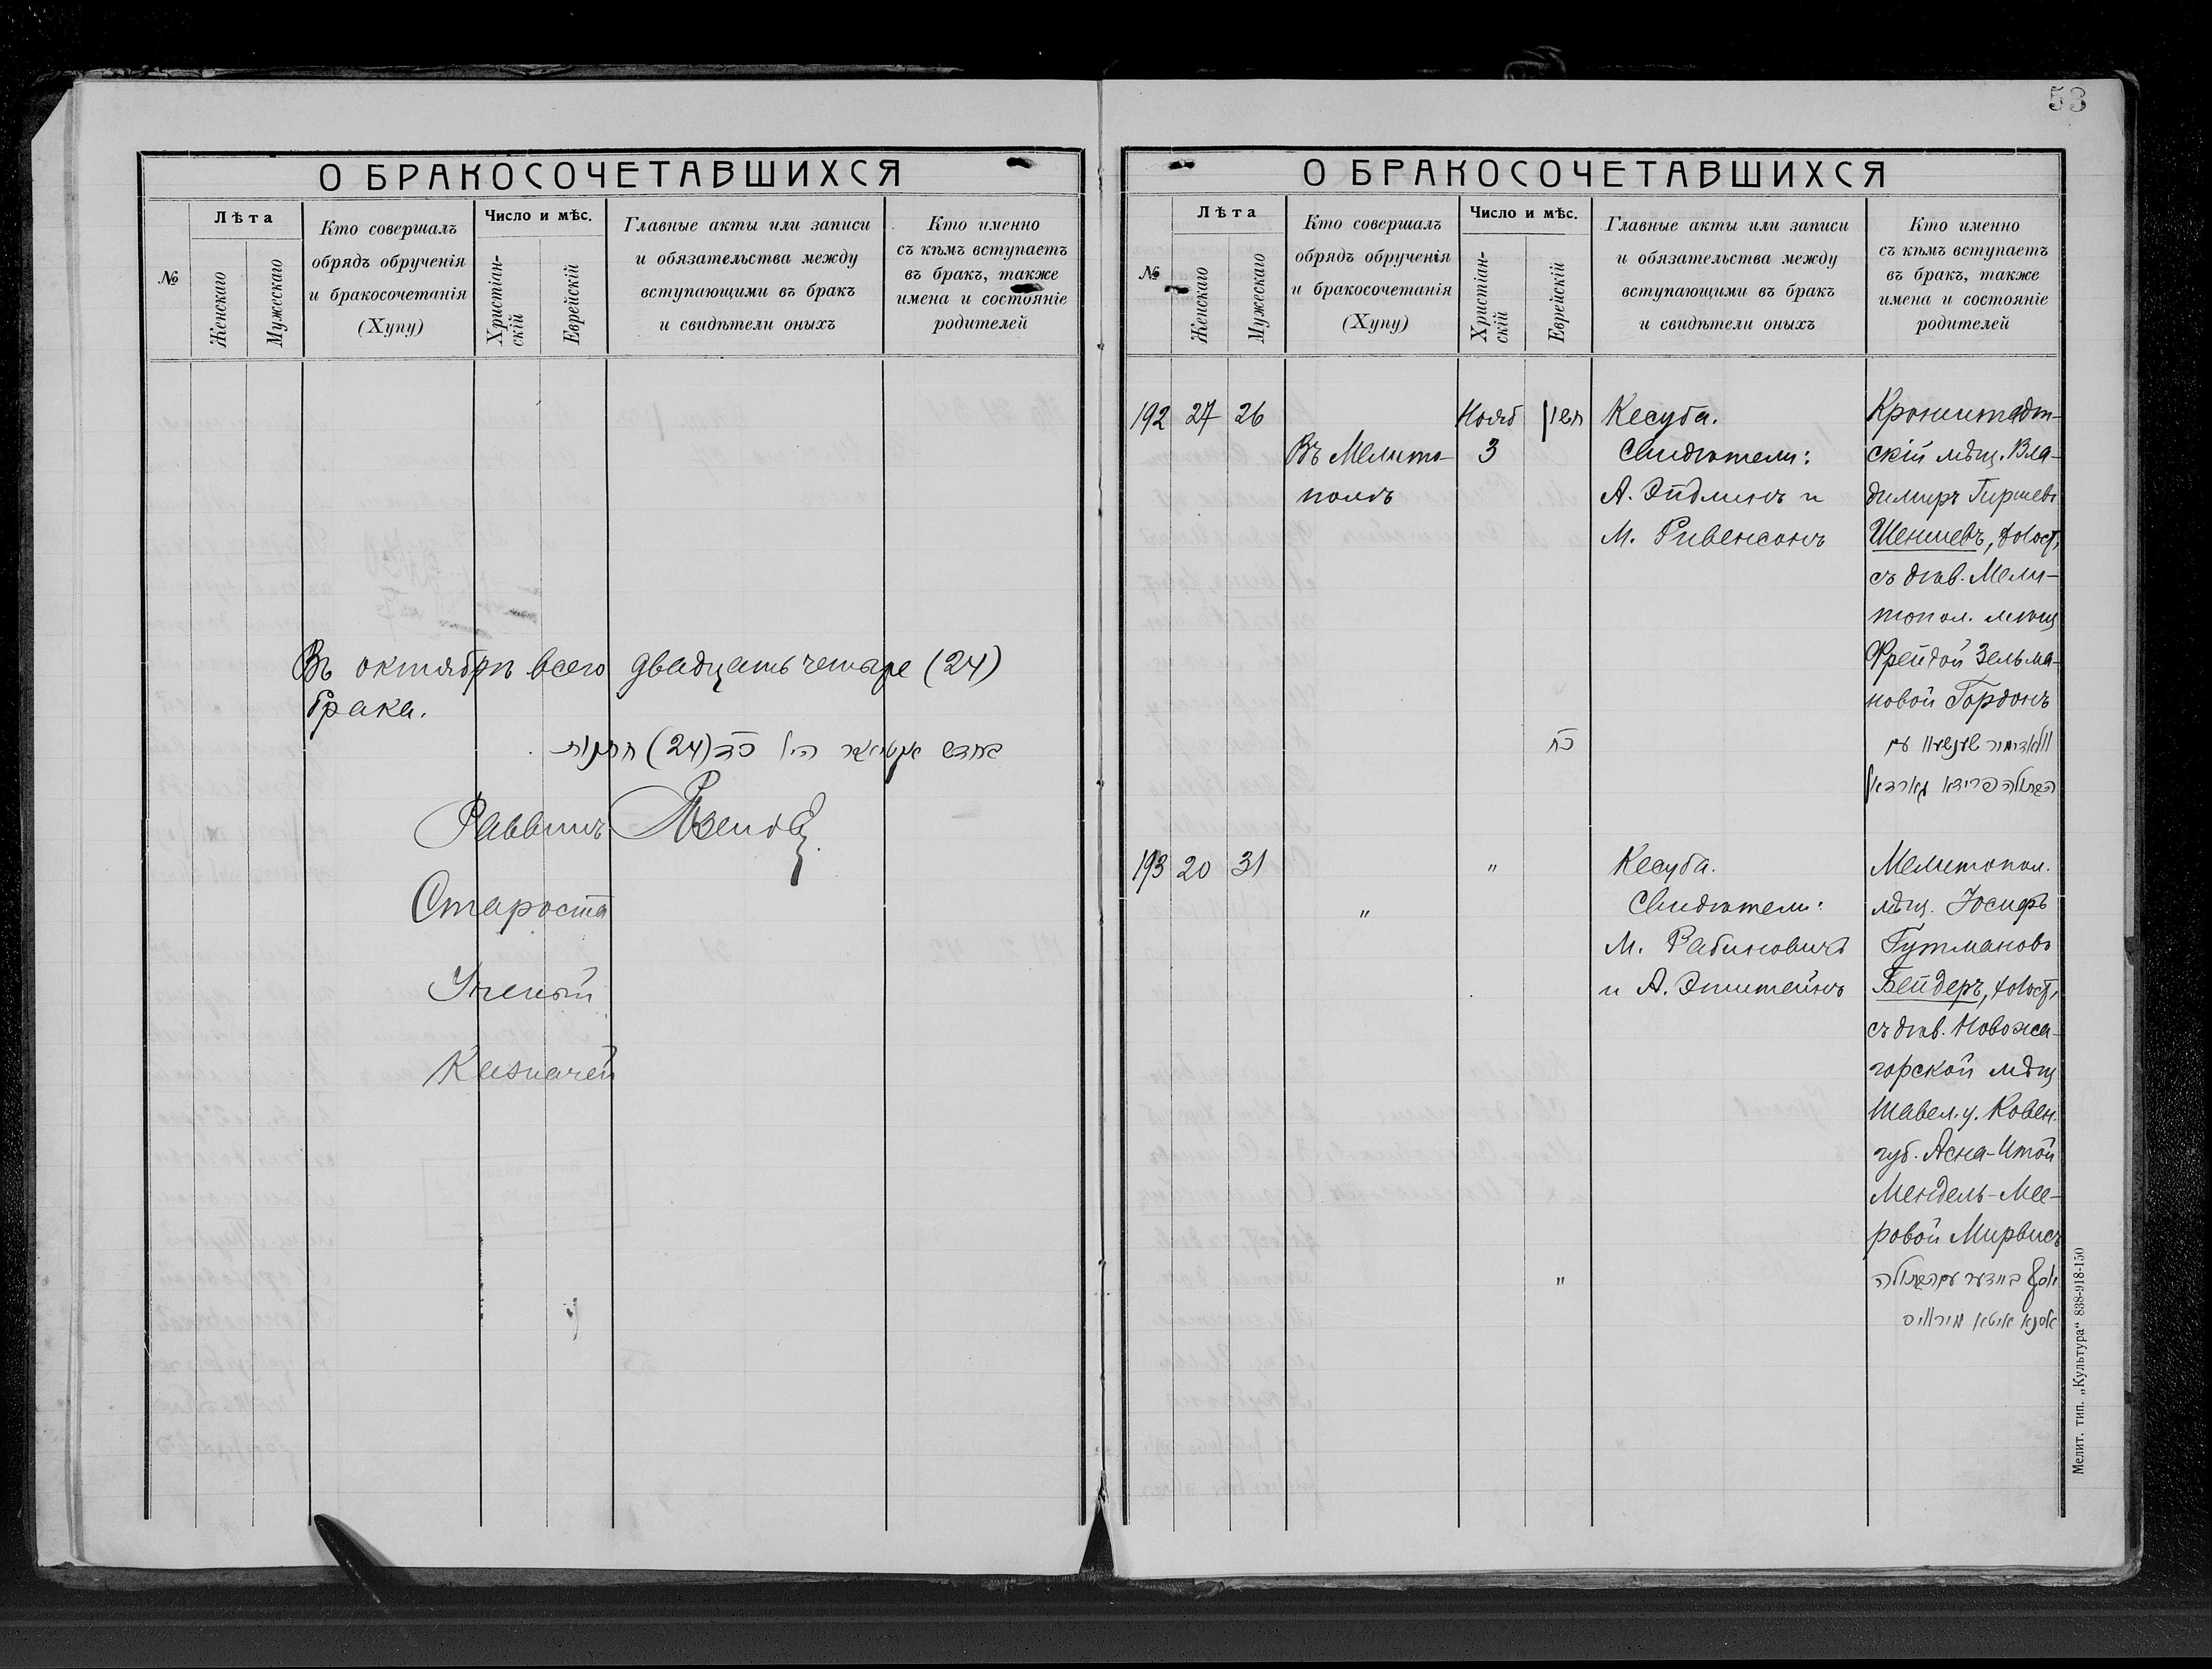 О БРАКОСОЧЕТАВШИХСЯ
№
Лѣта
Женскаго
Мужескаго
Кто совершалъ
обрядъ обрученія
и бракосочетанія
(Хупу)
Число и мѣс.
Христіан-
скій
Еврейскій
Главные акты или записи
и обязательства между
вступающими въ бракъ
и свидѣтели оныхъ
Кто именно
съ кѣмъ вступаетъ
въ бракъ, также
имена и состояніе
родителей
Въ октябрѣ всего двадцать четыре (24)
брака.
(24)
Раввинъ
Староста
Ученый
Казначей
53
О БРАКОСОЧЕТАВШИХСЯ
№
Лѣта
Женскаго
Мужескаго
Кто совершалъ
обрядъ обрученія
и бракосочетанія
(Хупу)
Число и мѣс.
Христіан-
скій
Еврейскій
Главные акты или записи
и обязательства между
вступающими въ бракъ
и свидѣтели оныхъ
Кто именно
съ кѣмъ вступаетъ
въ бракъ, также
имена и состояніе
родителей
192 27 26
Въ Мелито-
полѣ
Нояб
3
חשון
כח
Кесуба.
Свидѣтели:
А. Эйдлинъ и
М. Ривенсонъ
Кронштадт-
скій мѣщ. Вла-
димиръ Гиршевъ
Шеншевъ, холост,
съ дѣв. Мели-
топол. мѣщ
Фрейдой Зельма-
новой Гордонъ
הבתולה פריידא גארדאן
193 20 31
"
"
"
Кесуба.
Свидѣтели:
М. Рабиновичъ
и А. Эпштейнъ
Мелитопол.
мѣщ. Іосифъ
Гутмановъ
Бейдеръ, холост,
съ дѣв. Новожа-
горской мѣщ
Шавел. у. Ковен.
губ. Асна-Итой
Мендель-Мее-
ровой Мирвисъ
יוסף ביידער עם הבתולה
אסנא איטא מירוויס
Мелит. тип. „Культура“ 838-918-150